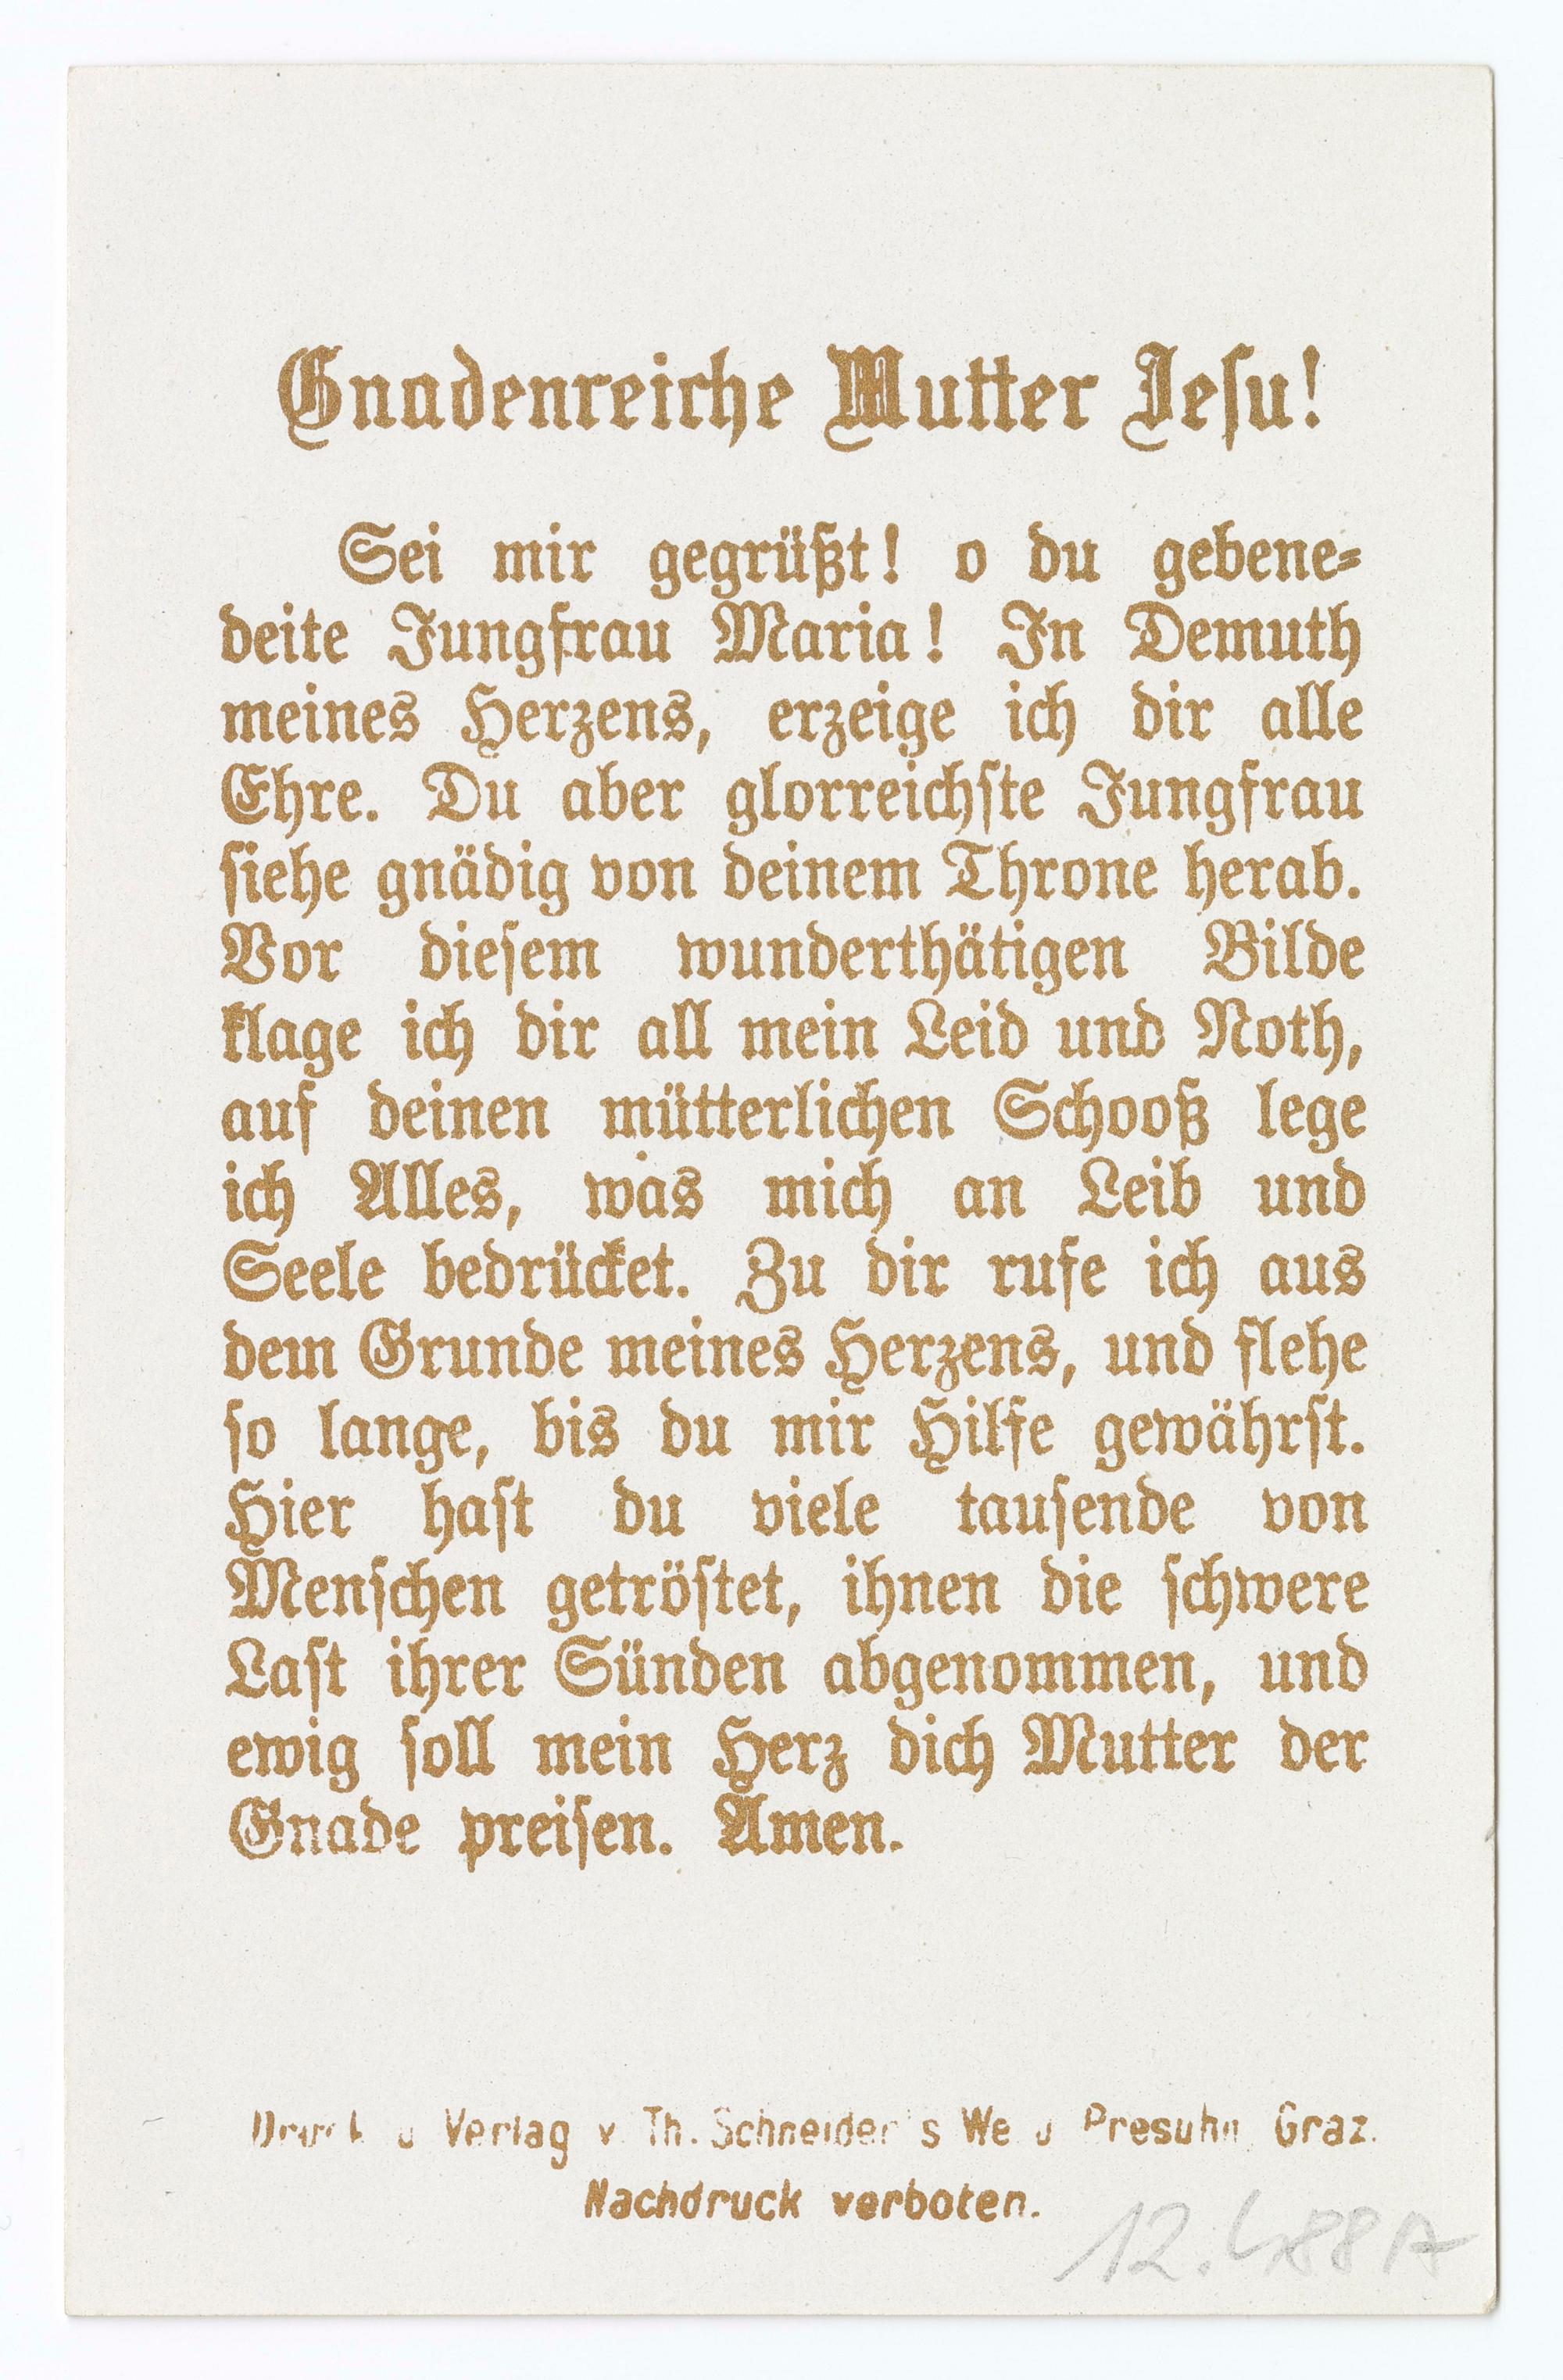 Gnadenreiche Mutter Jesu!
Sei mir gegrüßt! o du gebene-
deite Jungfrau Maria! In Demuth
meines Herzens, erzeige ich dir alle
Ehre. Du aber glorreichste Jungfrau
siehe gnädig von deinem Throne herab.
Vor diesem wunderthätigen Bilde
klage ich dir all mein Leid und Noth,
auf deinen mütterlichen Schooß lege
ich Alles, was mich an Leib und
Seele bedrücket. Zu dir rufe ich aus
dem Grunde meines Herzens, und flehe
so lange, bis du mir Hilfe gewährst.
Hier hast du viele tausende von
Menschen getröstet, ihnen die schwere
Last ihrer Sünden abgenommen, und
ewig soll mein Herz dich Mutter der
Gnade preisen. Amen.
Druck u Verlag v. Th. Schneider's We u Presuhn Graz.
Nachdruck verboten.
12.488 A